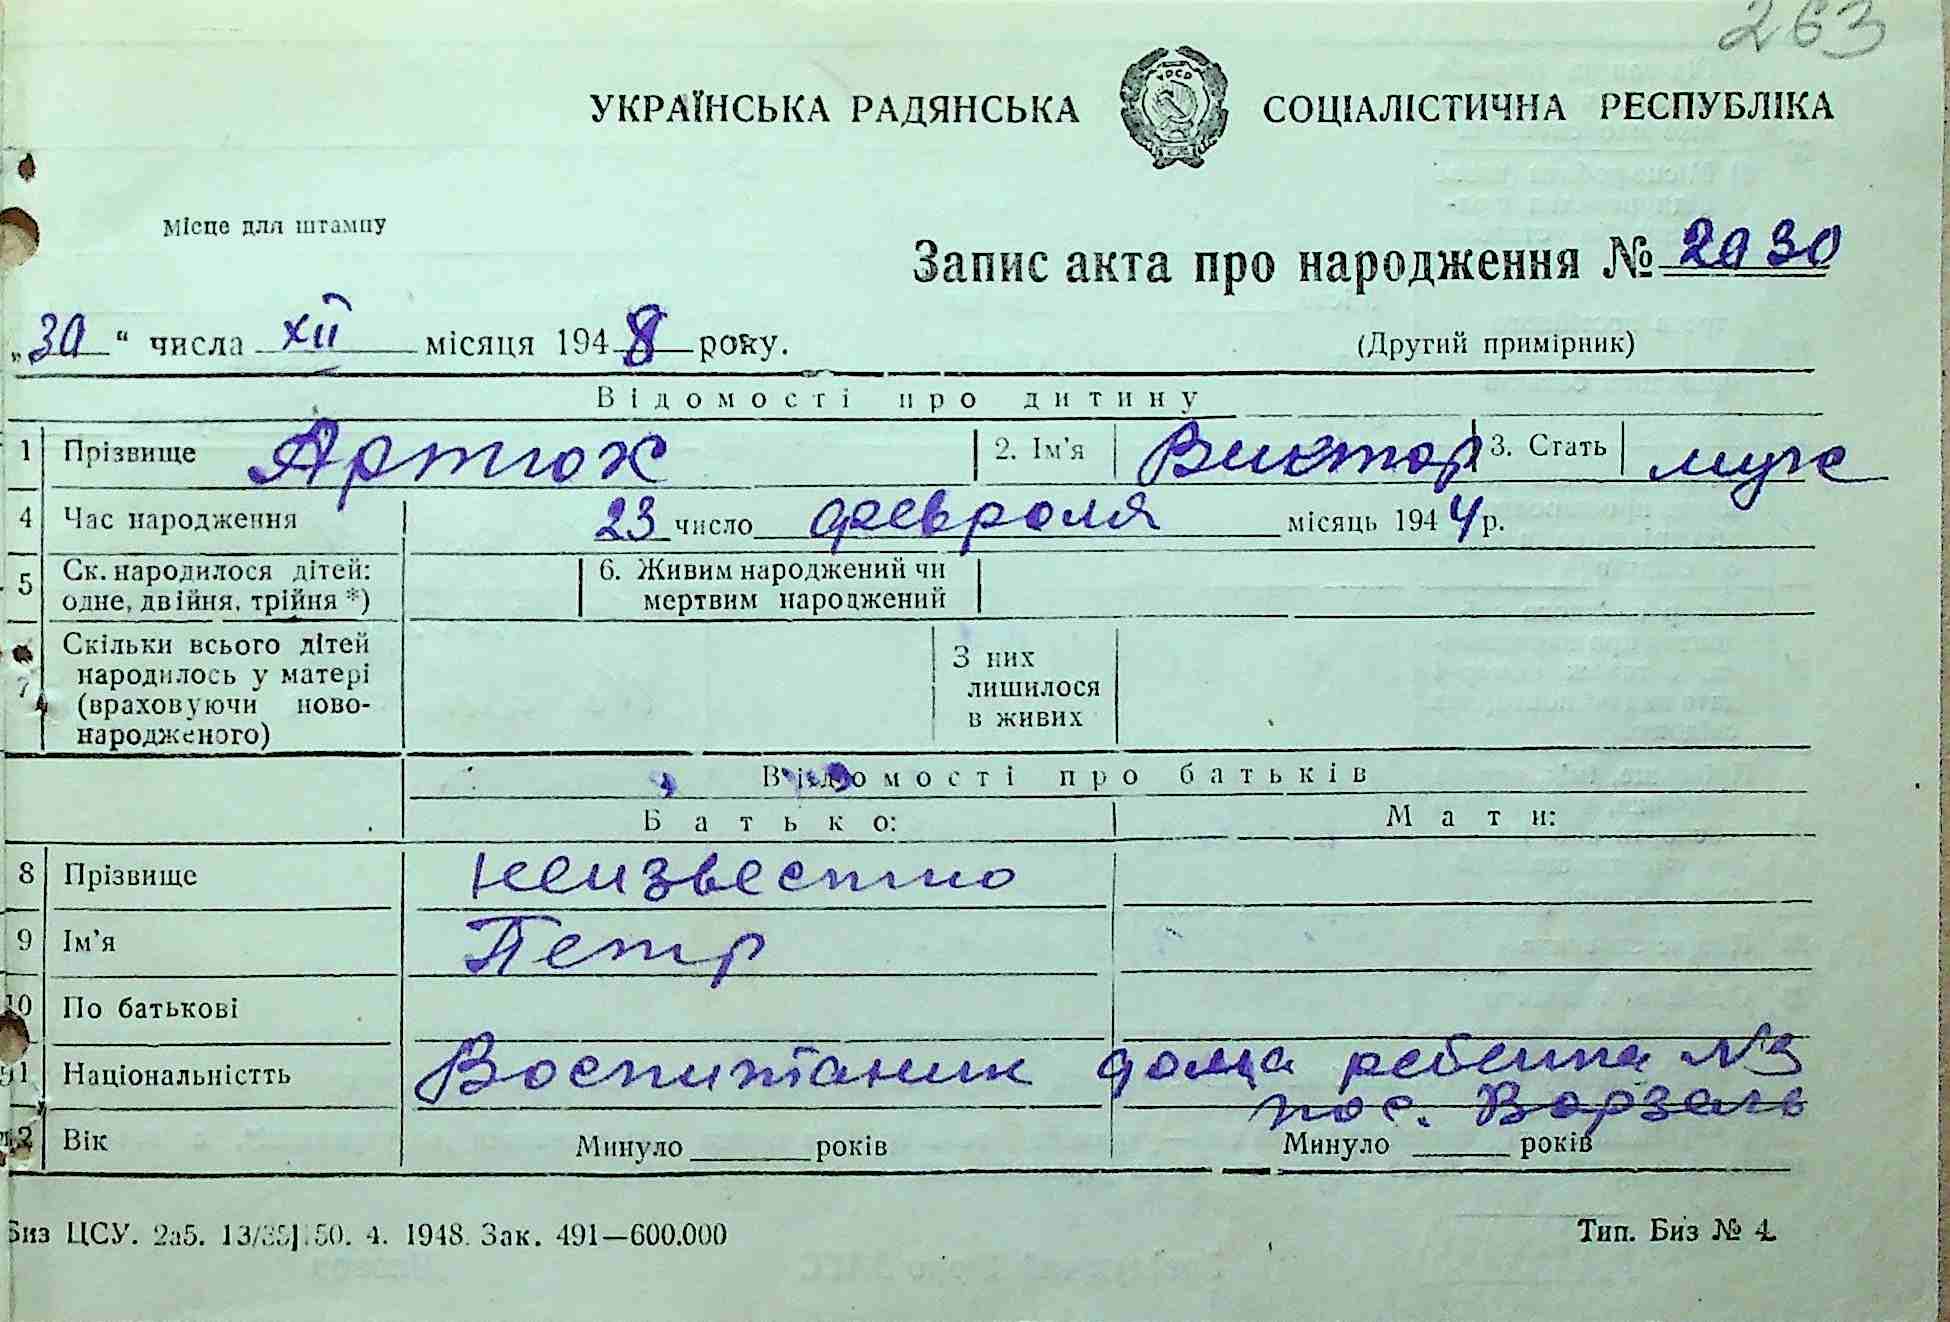 263
УКРАЇНСЬКА РАДЯНСЬКА СОЦІАЛІСТИЧНА РЕСПУБЛІКА
УРСР
Місце для штампу
Запис акта про народження № 2030
„30“ числа XII місяця 1948 року.
(Другий примірник)
Відомості про дитину
1 Прізвище Артюх 2. Ім’я Виктор 3. Стать муж
4 Час народження 23 число февроля місяць 1944 р.
5 Ск. народилося дітей: одне, двійня, трійня *) 6. Живим народжений чи мертвим народжений
7 Скільки всього дітей народилось у матері (враховуючи ново-народженого) З них лишилося в живих
Відомості про батьків
Батько: Мати:
8 Прізвище неизвестно
9 Ім’я Петр
10 По батькові
11 Національністть Воспитаник дома ребенка №3
пос. Ворзель
12 Вік Минуло ____ років Минуло ____ років
Биз ЦСУ. 2а5. 50. 4. 1948. Зак. 491—600.000 Тип. Биз № 4.